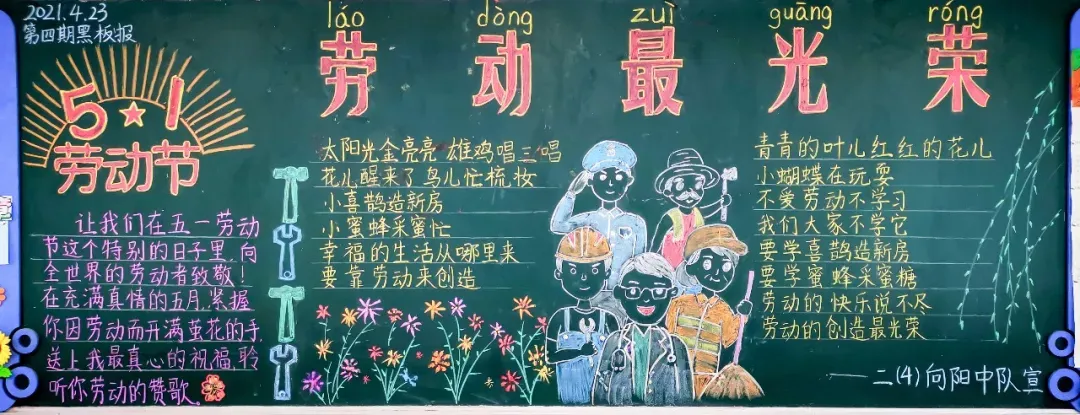 2021.4.23
第四期黑板报
5★1
劳动节
让我们在五一劳动
节这个特别的日子里,向
全世界的劳动者致敬!
在充满真情的五月,紧握
你因劳动而开满茧花的手,
送上我最真心的祝福,聆
听你劳动的赞歌。
láo dòng zuì guāng róng
劳动最光荣
太阳光金亮亮 雄鸡唱三唱
花儿醒来了 鸟儿忙梳妆
小喜鹊造新房
小蜜蜂采蜜忙
幸福的生活从哪里来
要靠劳动来创造
青青的叶儿红红的花儿
小蝴蝶在玩耍
不爱劳动不学习
我们大家不学它
要学喜鹊造新房
要学蜜蜂采蜜糖
劳动的快乐说不尽
劳动的创造最光荣
——二(4)向阳中队宣